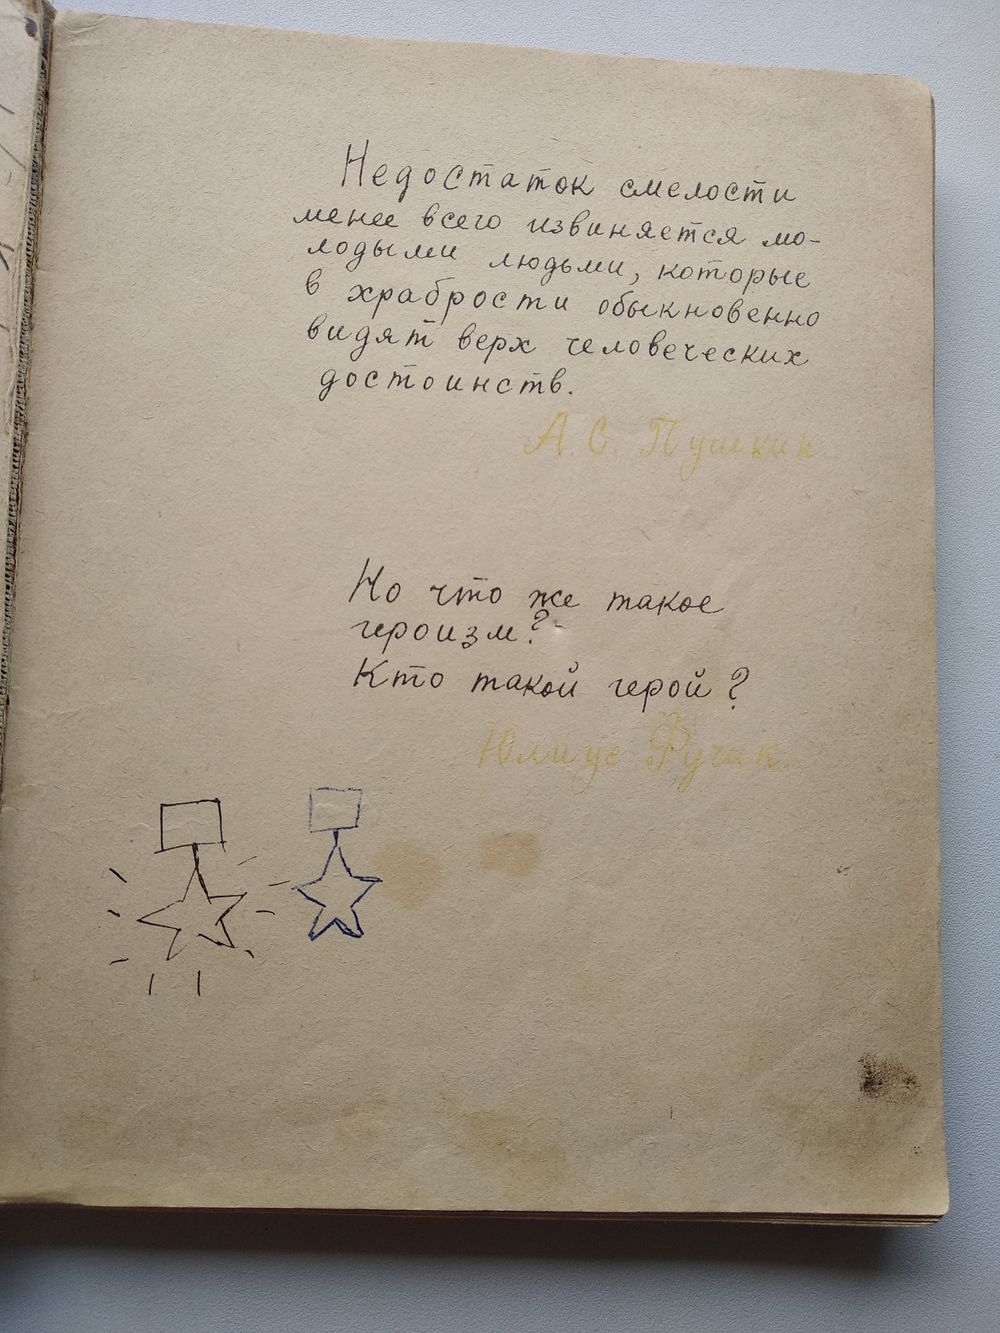 Недостаток смелости
менее всего извиняется мо-
лодыми людьми, которые
в храбрости обыкновенно
видят верх человеческих
достоинств.
А. С. Пушкин
Но что же такое
героизм?
Кто такой герой?
Юлиус Фучик.